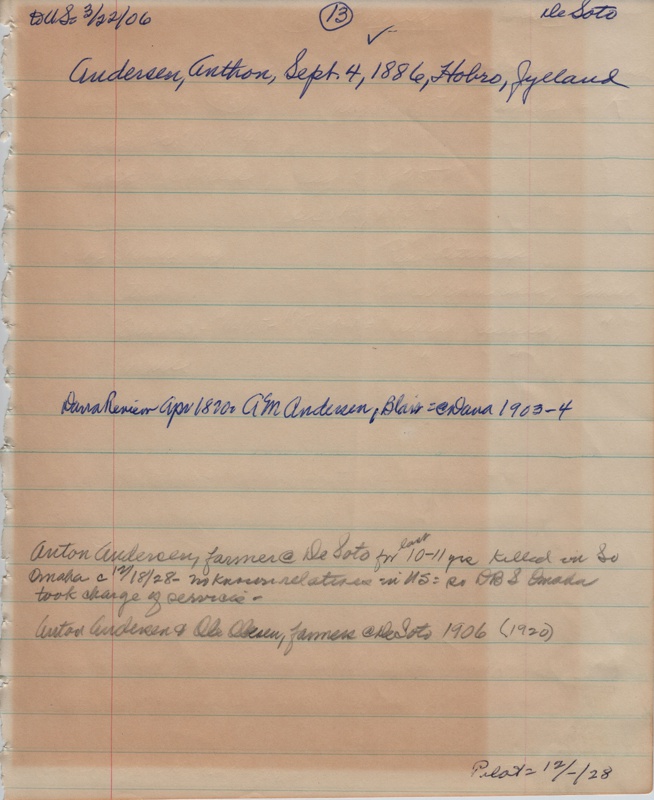 DUS= 3/22/06 13 De Soto
✓
Andersen, Anthon, Sept. 4, 1886, Hobro, Jylland
Dana Review Apr 1920= A M Andersen, Blair = @ Dana 1903-4
Anton Andersen, farmer @ De Soto for last 10-11 yrs killed in So
Omaha c 12/18/28- no known relatives in US= so DBS Omaha
took charge of services-
Anton Andersen & Ole Olesen, farmers @ De Soto 1906 (1920)
Pilot= 12/-/28